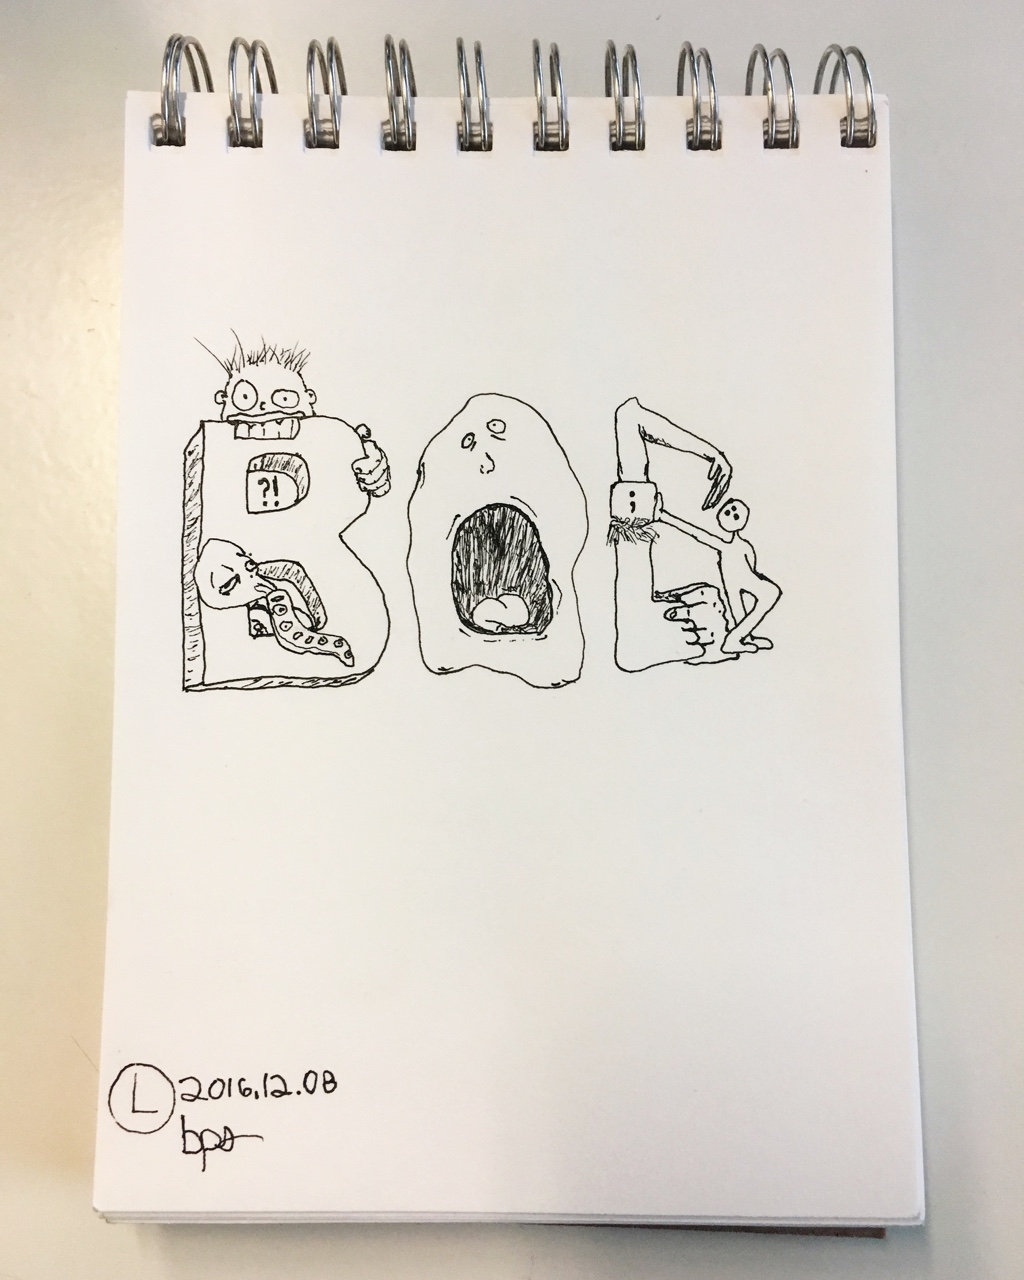 BOD
?!
;
L 2016.12.08
bps